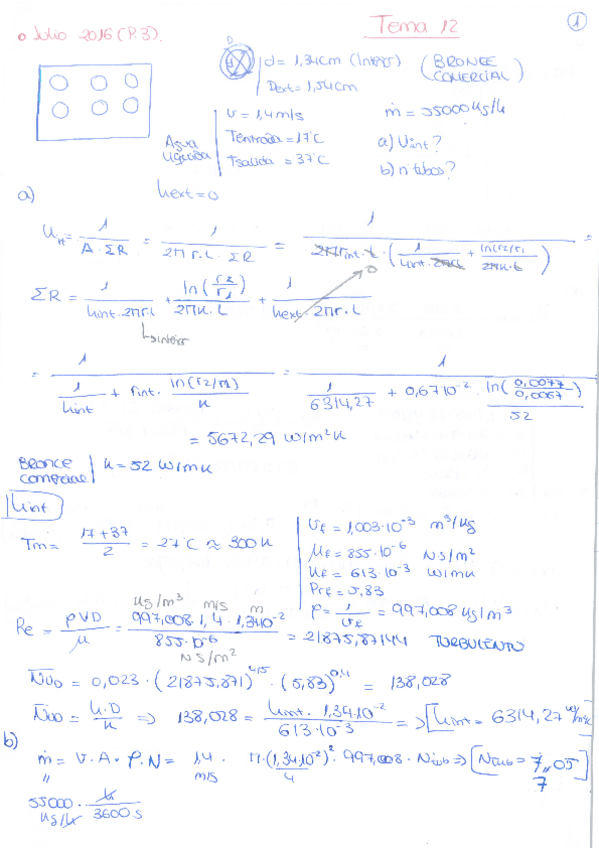 Tema 12
1
o Julio 2016 (P.3).
D
d = 1,34cm (Interior) (BRONCE COMERCIAL)
Dext = 1,54cm
v = 1,4 m/s ṁ = 55000 kg/h
Agua líquida Tentrada = 17°C a) Uint?
Tsalida = 37°C b) nº tubos?
a) hext = 0
Uint = 1 / (A · ΣR) = 1 / (2πr·L · ΣR) = 1 / (2πrint·L · (1/(hint·2πrL) + ln(r2/r1)/(2πk·L))) =
ΣR = 1/(hint·2πr·L) + ln(r2/r1)/(2πk·L) + 1/(hext·2πr·L)
0
interior
= 1 / (1/hint + rint · ln(r2/r1)/k) = 1 / (1/6314,27 + 0,67·10⁻² · ln(0,0077/0,0067)/52)
= 5672,29 W/m²K
BRONCE COMERCIAL | k = 52 W/mK
hint
Tm = (17+37)/2 = 27°C ≈ 300K
vf = 1,003·10⁻³ m³/kg
μf = 855·10⁻⁶ NS/m²
kf = 613·10⁻³ W/mK
Prf = 5,83
ρ = 1/vf = 997,008 kg/m³
kg/m³ m/s m
Re = ρVD/μ = 997,008·1,4·1,34·10⁻² / 855·10⁻⁶ = 21875,87144 TURBULENTO
NS/m²
NuD = 0,023 · (21875,871)^4/5 · (5,83)^0,4 = 138,028
NuD = h·D/k => 138,028 = hint·1,34·10⁻² / 613·10⁻³ => [hint = 6314,27 W/m²K
b)
ṁ = V·A·ρ·N = 1,4 · π·(1,34·10⁻²)²/4 · 997,008 · Ntub => [Ntub = 7,05]
" m/s 7
55000 kg/h · h/3600s